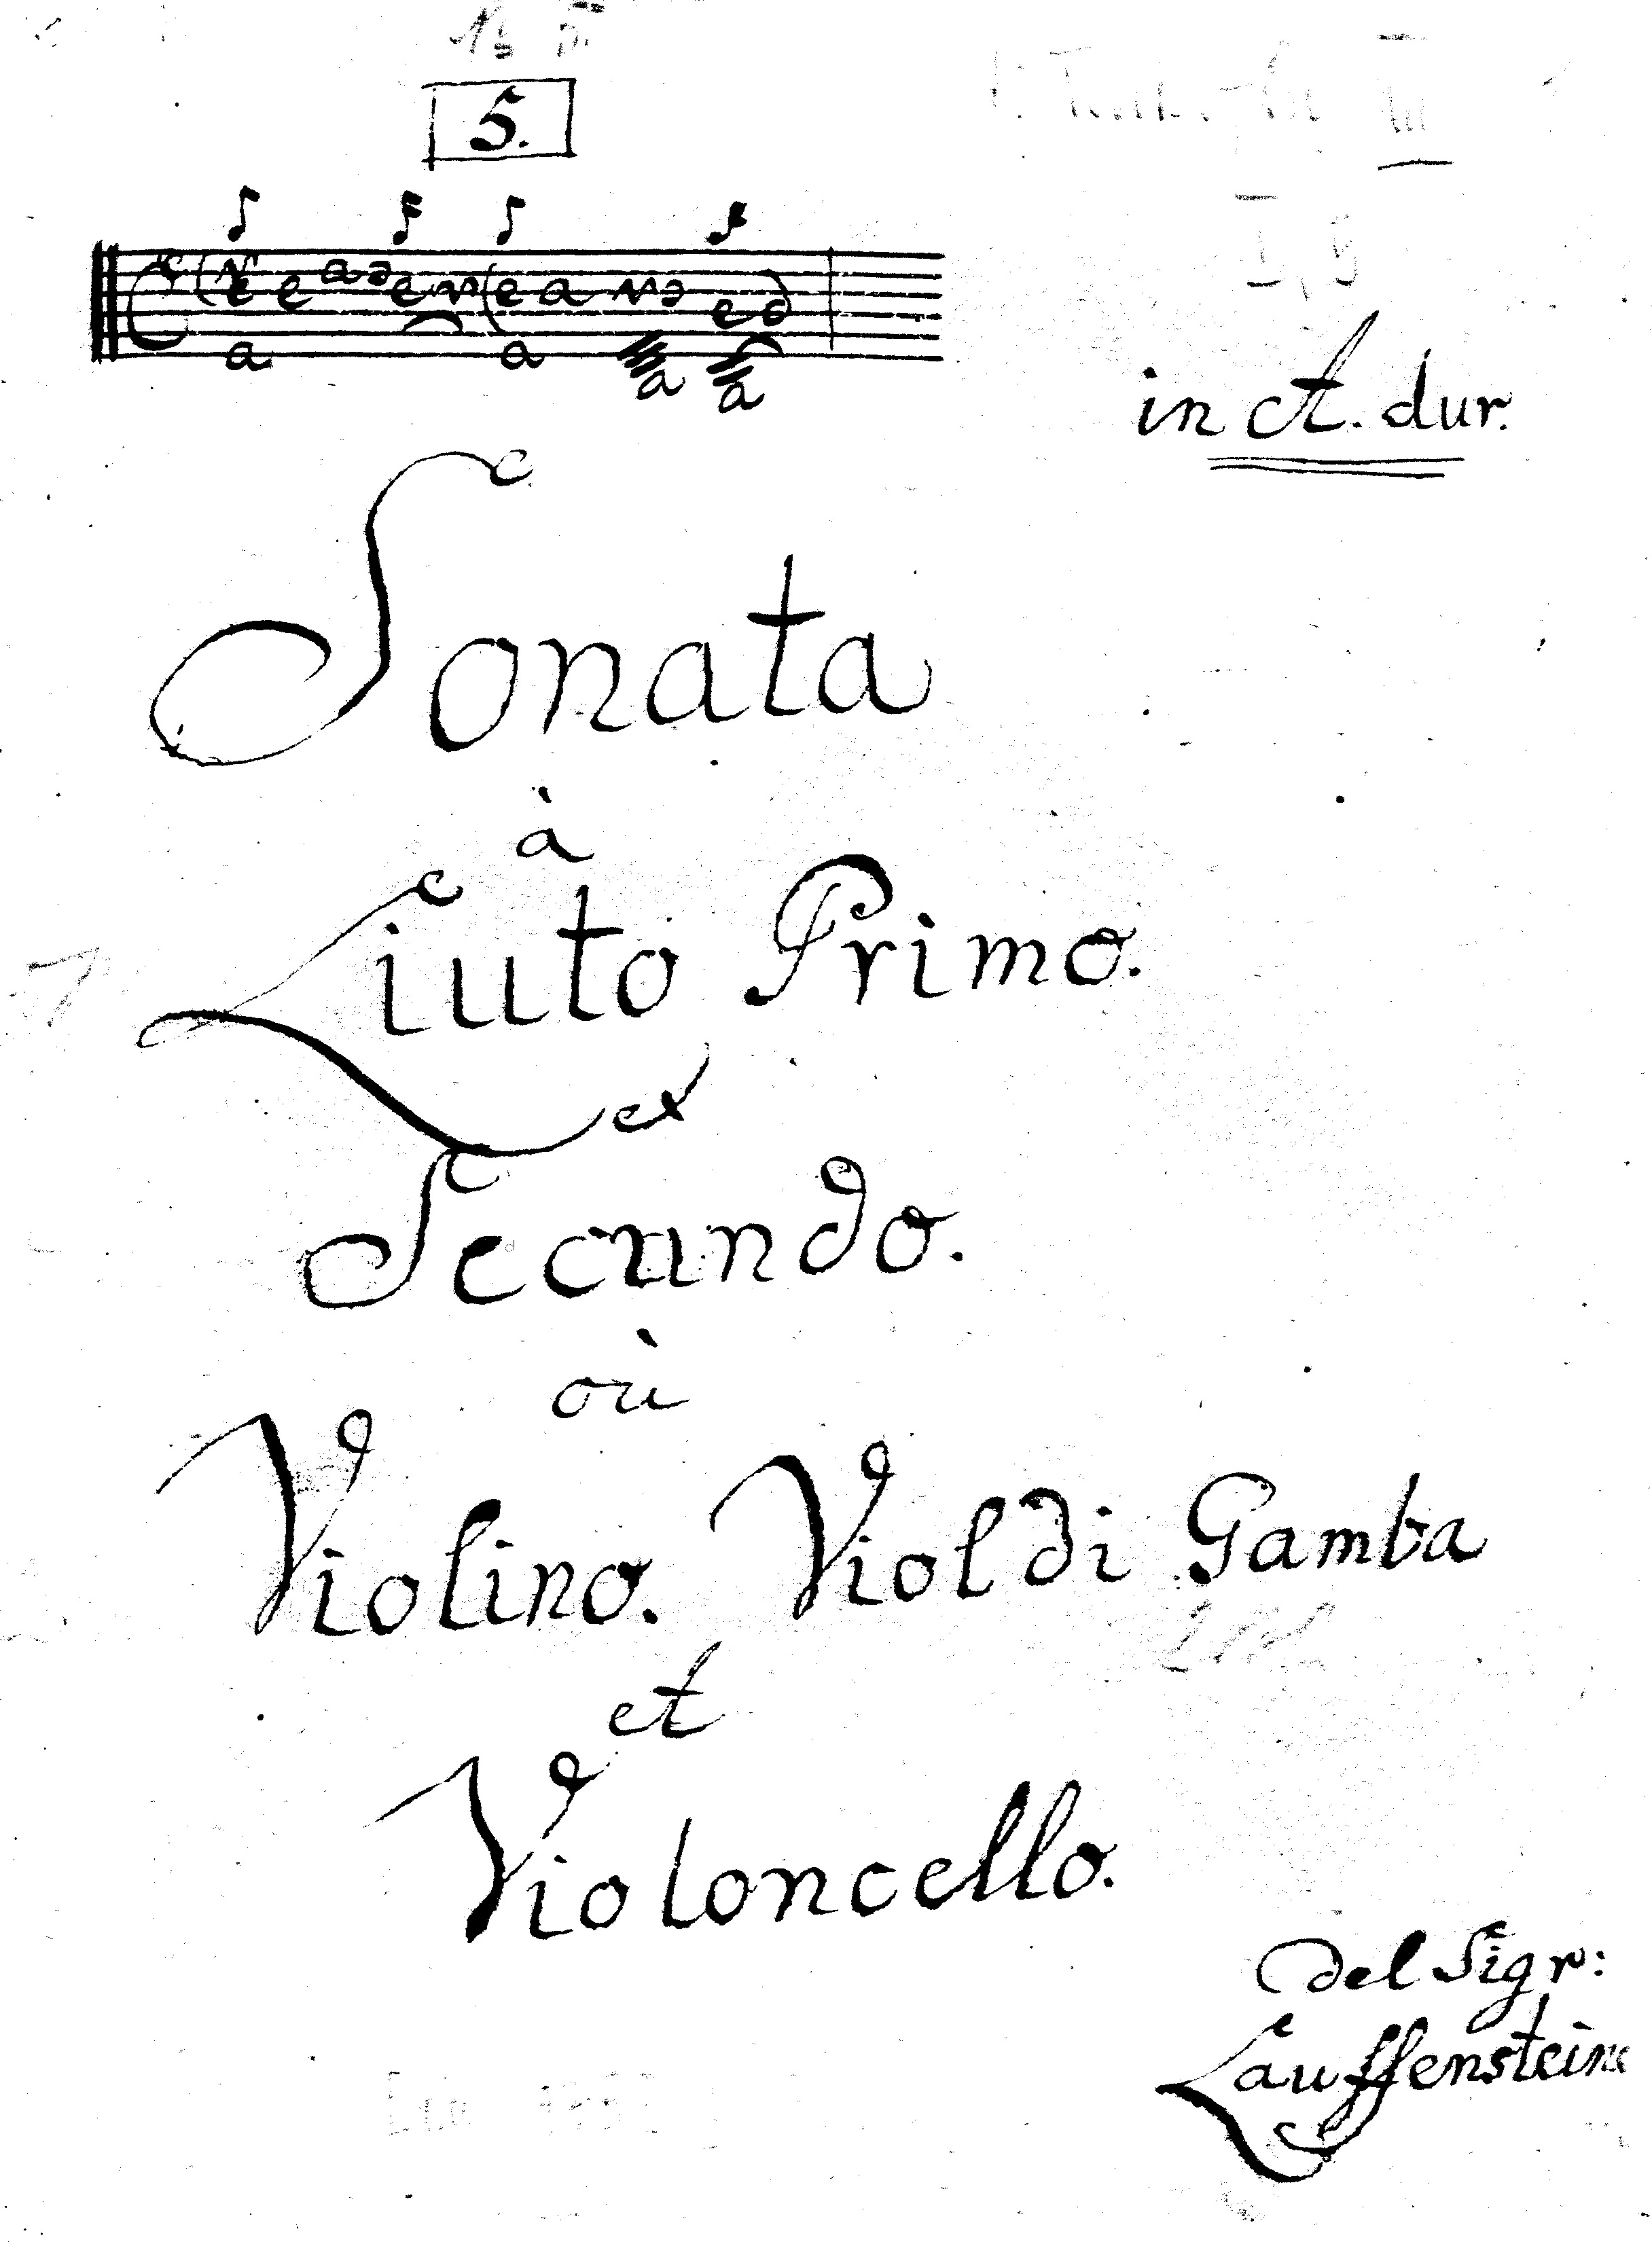 5.
in A. dur.
Sonata
à
Liuto Primo.
et
Secundo.
où
Violino. Viol di Gamba
et
Violoncello.
Del Sigr:
Lauffensteine